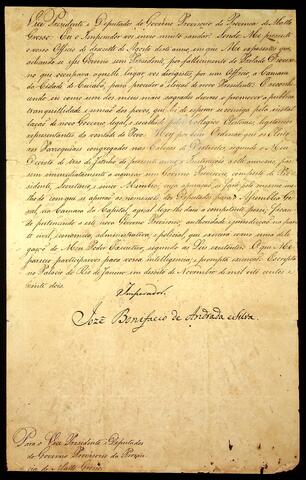 Vice Presidente e Deputados do Governo Provisorio da Provincia de Matto
Grosso. Eu o Imperador vos envio muito saudar. Sendo Me presente
o vosso Officio de dezoito de Agosto deste anno, em que Me expozestes que,
achando-se esse Governo sem Presidente, por fallecimento do
que occupava aquelle lugar, vos dirigistes, por um Officio, a Camara
da Cidade de Cuiabá, para proceder á eleição de novo Presidente. E
do eu como um dos meus mais sagrados deveres o promover a publica
tranquillidade e união dos povos, que
lação de novo Governo legal, e
representantes da vontade do Povo. Hey por bem Ordenar que os Eleito
res Parroquiaes congregados nas Cabeças de Districtos, segundo o Meu
Decreto de tres de Junho do presente anno, e Instrucções a elle annexas, pas
sem immediatamente a nomear um Governo Provisorio, composto de Pre
sidente, Secretario, e cinco Membros, cuja apuração se fará pelo mesmo me
thodo com que se apurão as nomeações dos Deputados para a Assemblea Ge
ral, na Camara da Capital, a qual lhes dará a competente posse, fican
do pertencendo a este novo Governo Provisorio authoridade, e jurisdicção na par
te civil, economica, administrativa, e policial, que exercerá como uma dele
gação do Meu Poder Executivo, segundo as Leis existentes. O que Me
pareceo participarvos para vossa intelligencia, e prompta execução. Escripta
no Palacio do Rio de Janeiro em dezoito de Novembro de mil oito centos e
vinte dois.
Imperador.
Jozé Bonifacio de Andrada e Silva.
Para o Vice Presidente e Deputados
do Governo Provisorio da Provin
cia de Matto Grosso